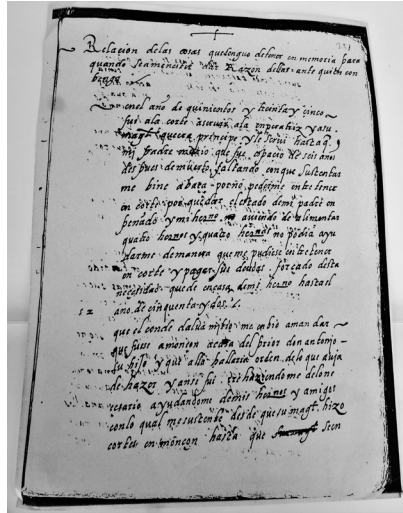 Relacion delas cosas quetengo detener en memoria para
quando seamenester dar Razon dellas ante quien con
benga
en el año de quinientos y treinta y cinco
fui ala corte aseruir ala enperatriz y a su
magt que era principe y le serui hasta q
mi padre murio que fue espacio de seis años
despues de muerto faltando con que sustentar
me bine a bara pornopedirme entretener
en corte por quedar el estado demi padre en
penado y mi herno no auiendo de alimentar
quatro hernos y quatro hernas no podia ayu
darme demanera que me pudiese entretener
en corte y pagar sus deudas forçado desta
necesidad quede encasa demi herno hasta el
52 ano de cinquenta y dos
que el conde dalua mi tio me enbio a mandar
que fuese amonson acasa del prior don antonio
su hijo y que alla hallaria orden delo que auia
de hazer y ansi fui rehaziendome delo ne
cesario ayudandome demis hernos y amigos
conlo qual me sustente desde que su magt hizo
cortes en monçon hasta que